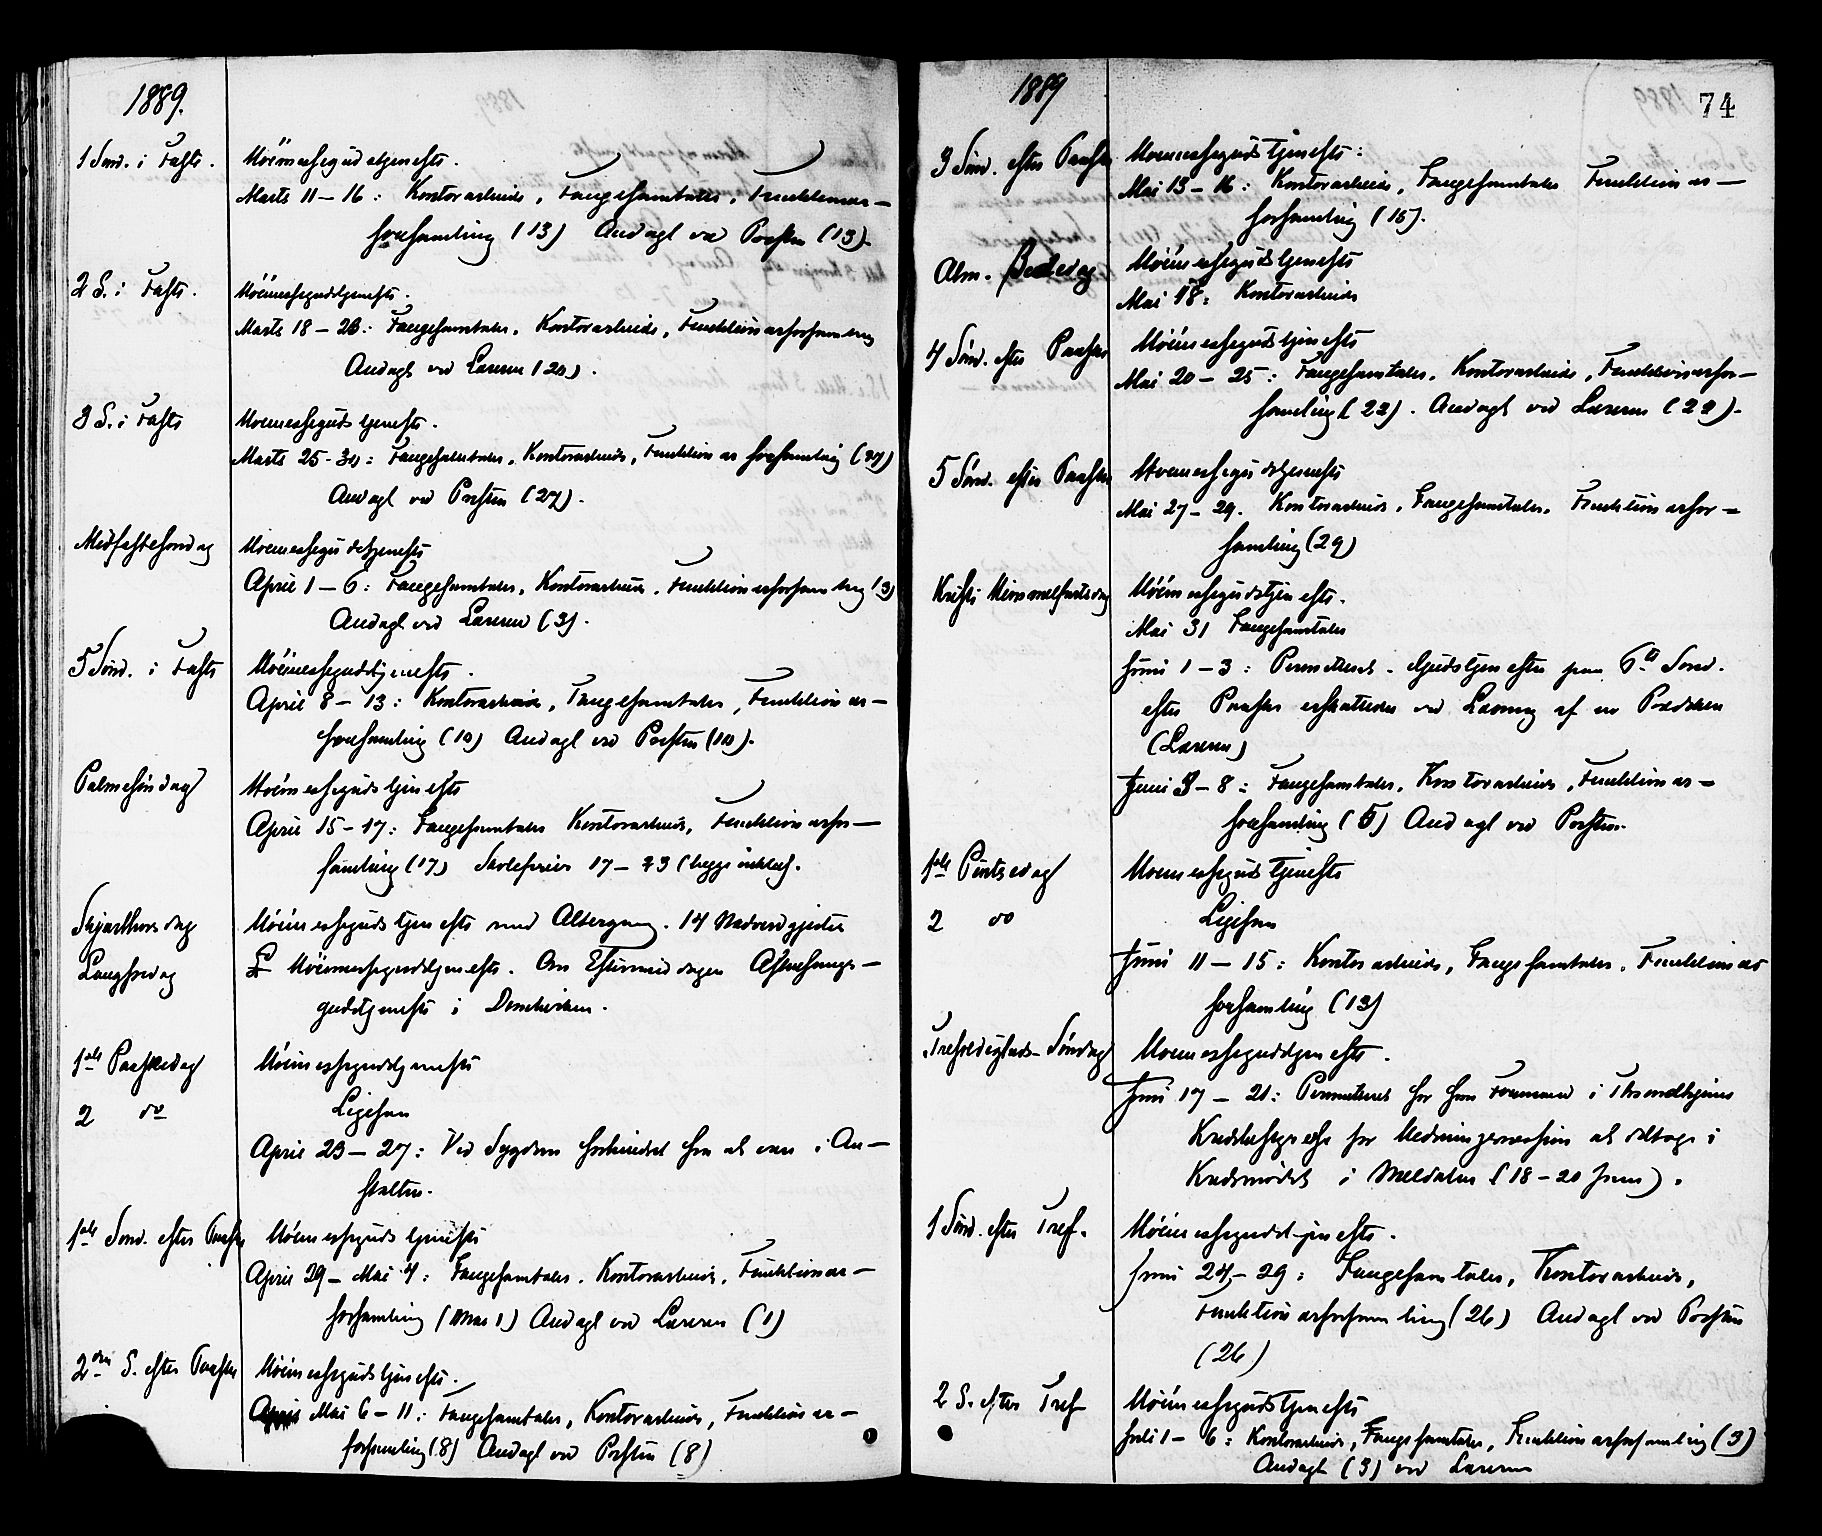 1889.
1 Sønd. i Faste. Høimessegudstjeneste.
Marts 11 – 16: Kontorarbeide, Fangesamtaler, Funktionær-
forsamling (13) Andagt ved Præsten (13).
2 S. i Faste. Høimessegudstjeneste.
Marts 18 – 23: Fangesamtaler, Kontorarbeide, Funktionærforsamling
Andagt ved Læreren (20).
3 S. i Faste Høimessegudstjeneste.
Marts 25 - 30: Fangesamtaler, Kontorarbeide, Funktionærforsamling (27)
Andagt ved Præsten (27).
Midfastesøndag Høimessegudstjeneste
April 1 – 6: Fangesamtaler, Kontorarbeide, Funktionærforsamling (3)
Andagt ved Læreren (3).
5 Sønd. i Faste Høimessegudstjeneste.
April 8 – 13: Kontorarbeide, Fangesamtaler, Funktionær-
forsamling (10) Andagt ved Præsten (10).
Palmesøndag Høimessegudstjeneste
April 15 – 17: Fangesamtaler Kontorarbeide, Funktionærfor-
samling (17) Skoleferier 17 – 23 (begge inklus).
Skjærthorsdag Høimessegudstjeneste med Altergang. 14 Nadvergjester
Langfredag Høimessegudstjeneste. Om Eftermiddagen Aftensangs-
gudstjeneste i Domkirken.
1ste Paaskedag Høimessegudstjeneste
2 do Ligesaa
April 23 – 27: Ved Sygdom forhindret fra at være i An-
stalten.
1ste Sønd. efter Paaske Høimessegudstjeneste
April 29 – Mai 4: Fangesamtaler, Kontorarbeide, Funktionær-
forsamling (Mai 1) Andagt ved Læreren (1)
2den S. efter Paaske Høimessegudstjeneste.
Mai 6 – 11: Fangesamtaler, Kontorarbeide, Funktionær-
forsamling (8) Andagt ved Præsten (8)
1889
74
3 Sønd. efter Paaske Høimessegudstjeneste:
Mai 13 – 16: Kontorarbeide, Fangesamtaler Funktionær-
forsamling (15).
Alm. Bededag Høimessegudstjeneste
Mai 18: Kontorarbeide
4 Sønd. efter Paaske Høimessegudstjeneste
Mai 20 – 25: Fangesamtaler, Kontorarbeide, Funktionærfor-
samling (22). Andagt ved Læreren (22).
5 Sønd. efter Paaske Høimessegudstjeneste
Mai 27 – 29. Kontorarbeide, Fangesamtaler, Funktionærfor-
samling (29)
Kristi Himmelfartsdag Høimessegudstjeneste.
Mai 31 Fangesamtaler
Juni 1 – 3: Permitteret. Gudstjenesten paa 6te Sønd.
efter Paaske erstattedes ved Læsning af en Prædiken
(Læreren)
Juni 3 – 8: Fangesamtaler, Kontorarbeide, Funktionær-
forsamling (5) Andagt ved Præsten.
1ste Pintsedag Høimessegudstjeneste
2 do Ligesaa
Juni 11 – 15: Kontorarbeide, Fangesamtaler, Funktionær
forsamling (13)
Trefoldigheds-Søndag Høimessegudstjeneste.
Juni 17 – 21: Permitteret for som Formand i Throndhjems
Kredsbestyrelse for Hedningemissionen at deltage i
Kredsmødet i Meldalen (18 – 20 Juni).
1 Sønd. efter Tref. Høimessegudstjeneste.
Juni 24 – 29: Fangesamtaler, Kontorarbeide,
Funktionærforsamling (26) Andagt ved Præsten
(26)
2 S. efter Tref Høimessegudstjeneste
Juli 1 – 6: Kontorarbeide, Fangesamtaler, Funktionærforsamling (3)
Andagt (3) ved Læreren